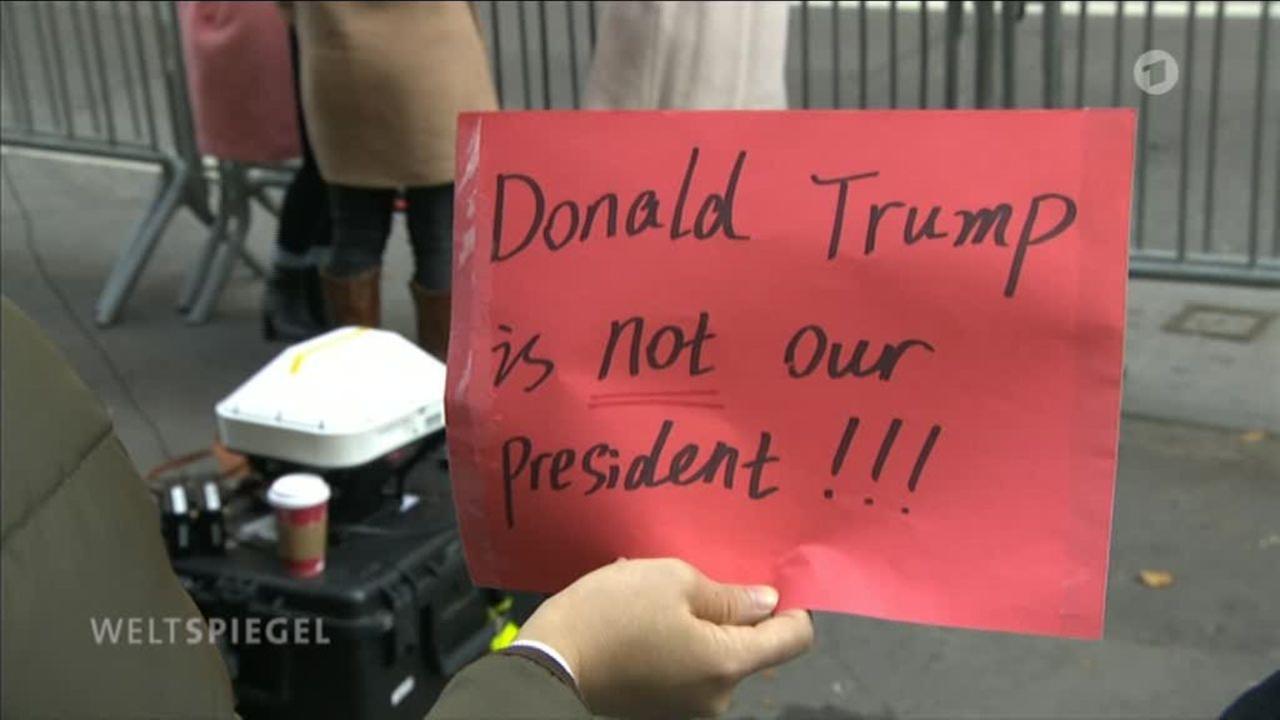 1
Donald Trump
is not our
president !!!
WELTSPIEGEL